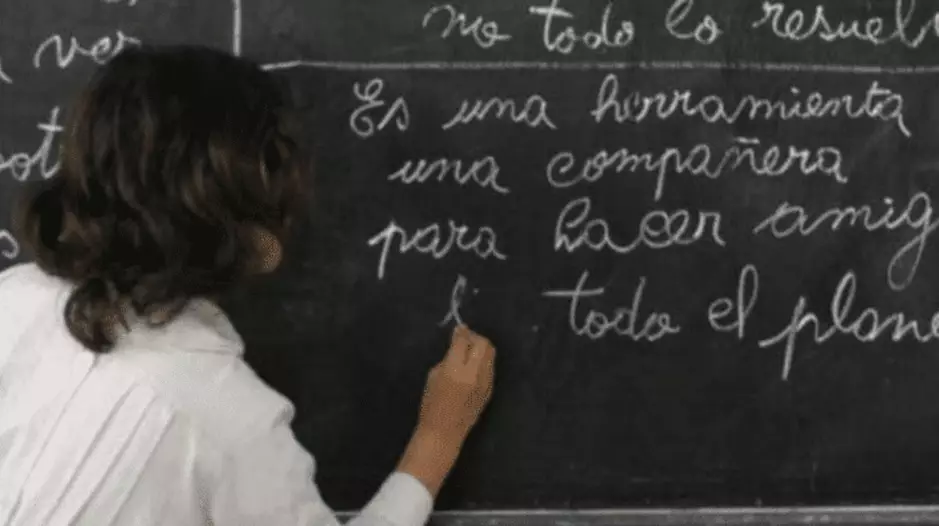 ver
no todo lo resuelv
Es una herramienta
una compañera
para hacer amig
todo el plane